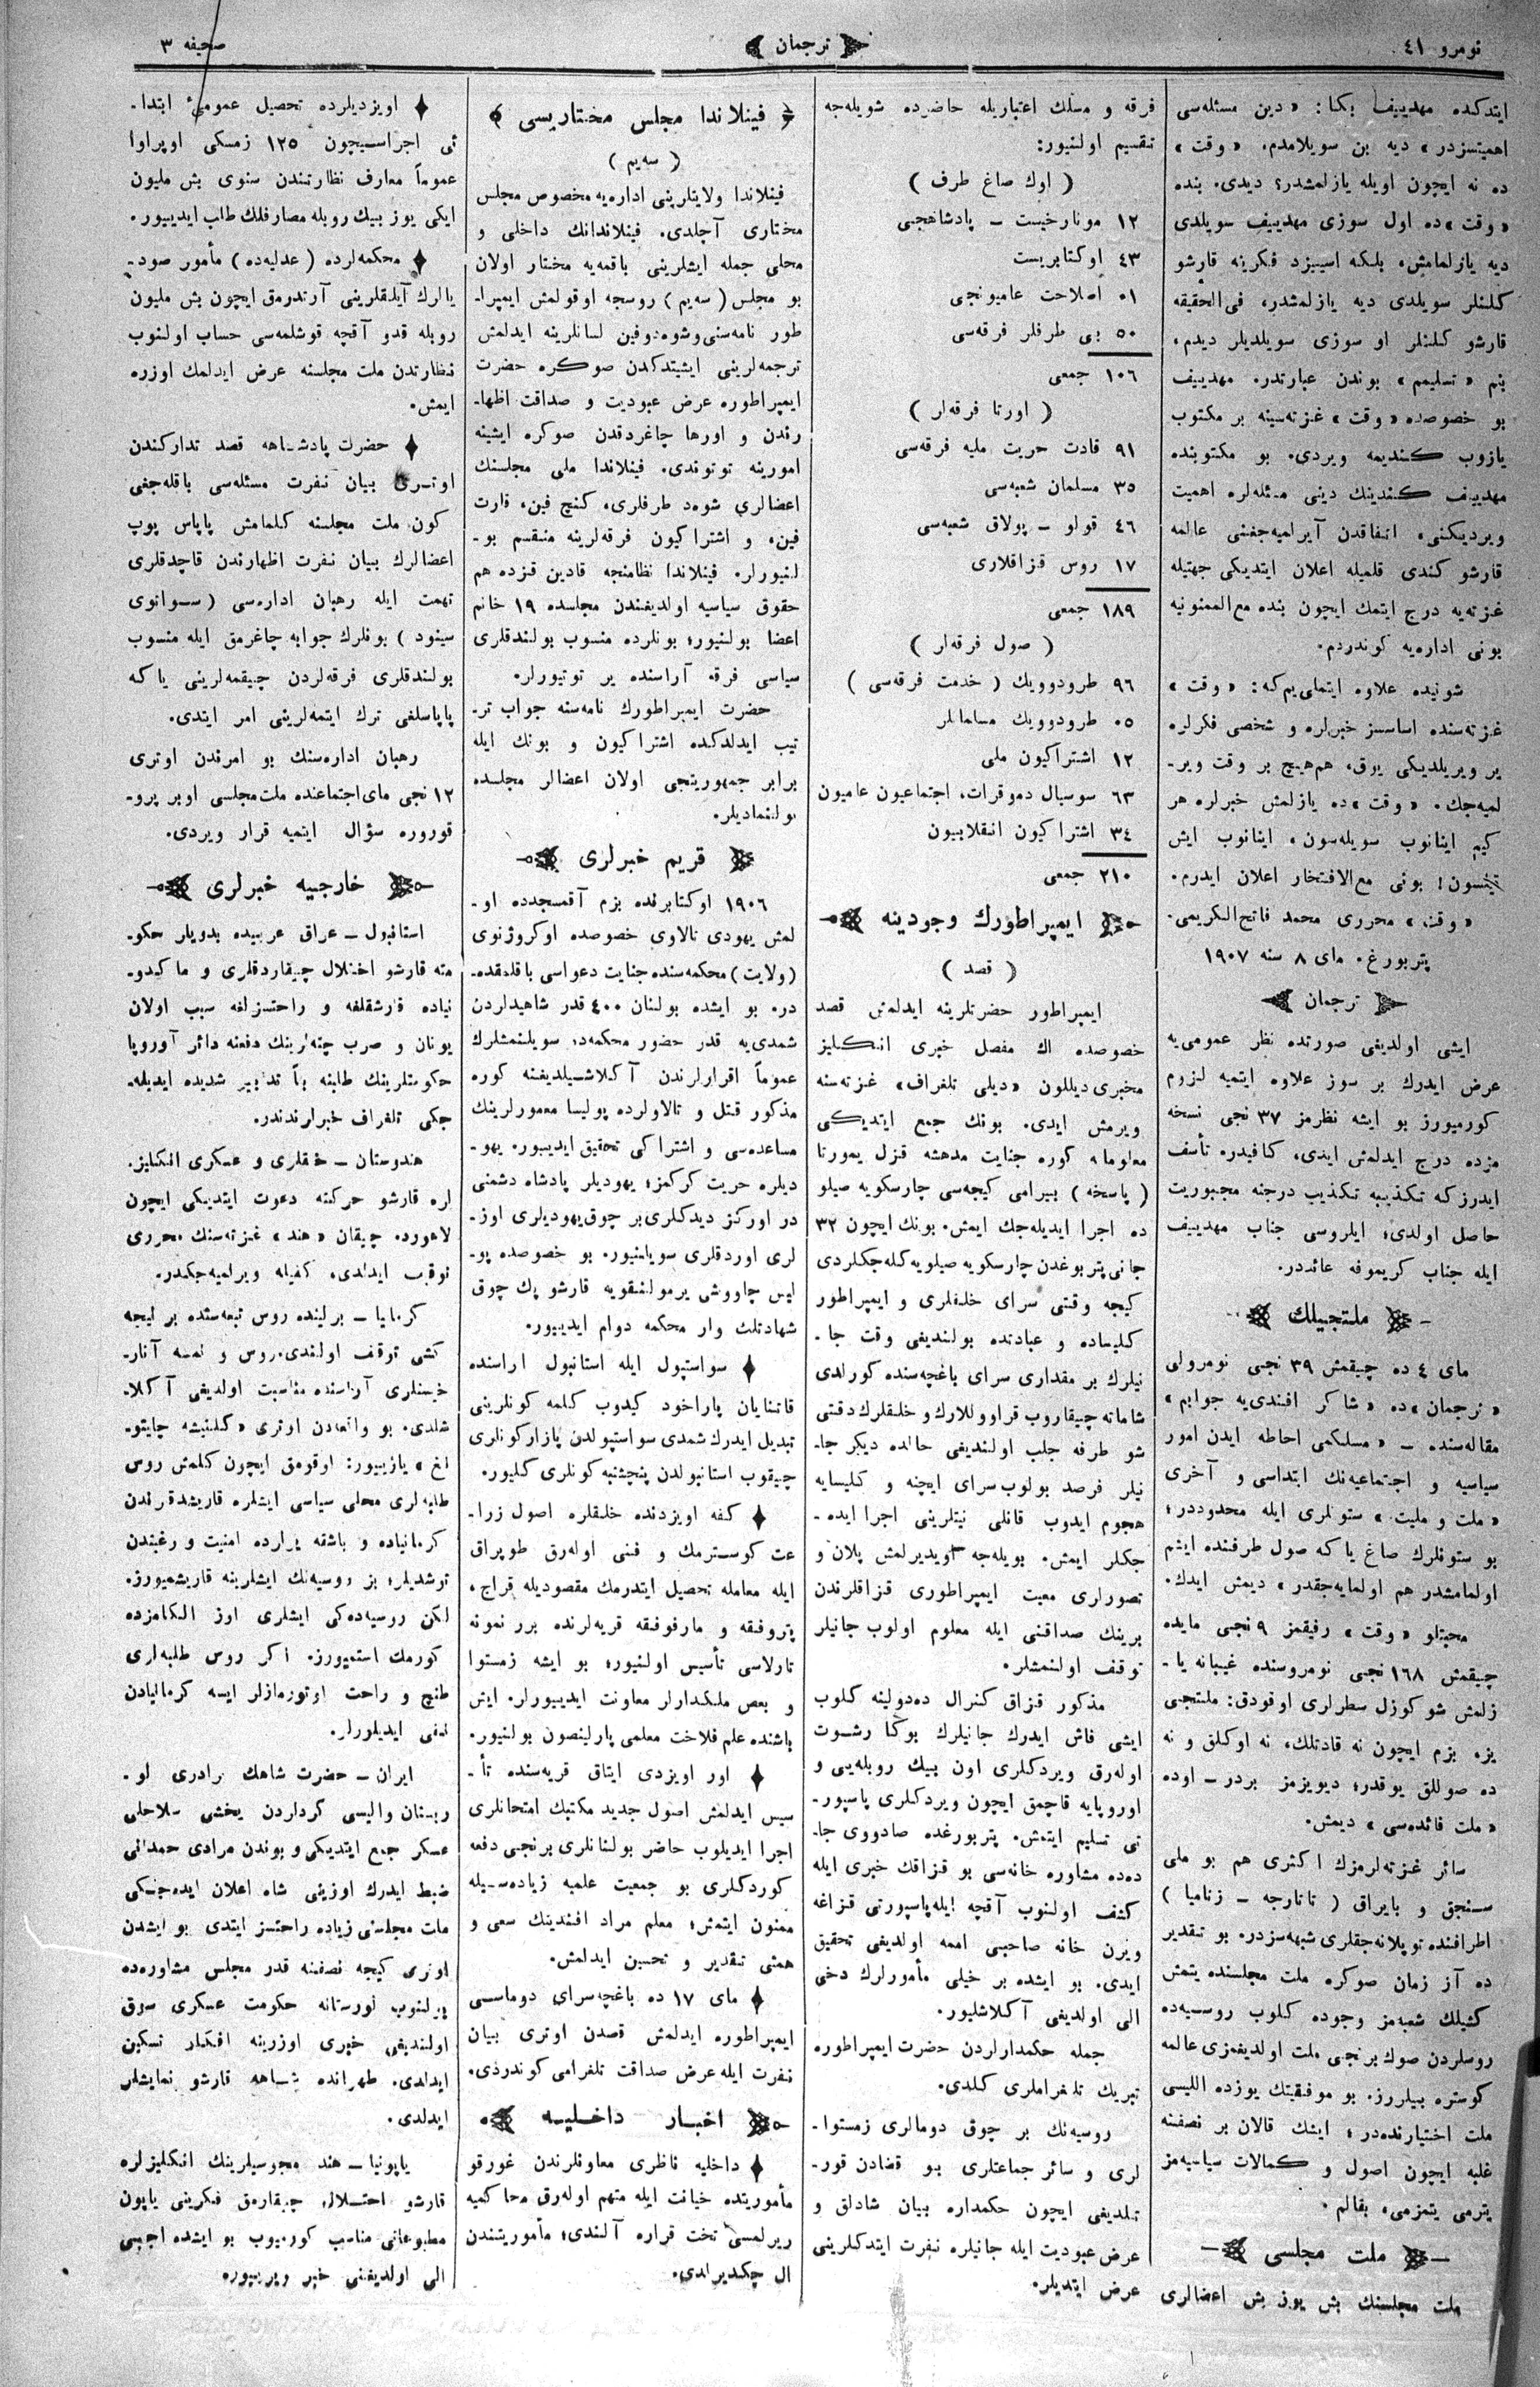 نومرو ٤١
ترجمان
صحیفه ٣
ایتدكده مهدییف بكا: «دین مسئله‌سی
اهمیتسزدر» دیه بن سویلامدم، «وقت»
ده نه ایچون اویله یازلمشدر؟ دیدی. بنده
«وقت»ده اول سوزی مهدییف سویلدی
دیه یازلمامش، بلكه اسیزد فكرینه قارشو
كلنلر سویلدی دیه یازلمشدر، فی‌الحقیقه
قارشو كلنلر او سوزی سویلدیلر دیدم،
بنم «تسلیمم» بوندن عبارتدر. مهدییف
بو خصوصده «وقت» غزته‌سینه بر مكتوب
یازوب كندیمه ویردی. بو مكتوبنده
مهدییف كندینك دینی مسئله‌لره اهمیت
ویردیكنی، اتفاقدن آیرلمیه‌جغنی عالمه
قارشو كندی قلمیله اعلان ایتدیكی جهتیله
غزته‌یه درج ایتمك ایچون بنده مع الممنونیه
بونی اداره‌یه كوندردم.
شونیده علاوه ایتملی‌یم كه: «وقت»
غزته‌سنده اساسسز خبرلره و شخصی فكرلره
یر ویریلدیكی یوق، هم هیچ بر وقت ویر-
لمیه‌جك. «وقت»ده یازلمش خبرلره هر
كیم اینانوب سویله‌سون، اینانوب ایش
ایتسون! بونی مع الافتخار اعلان ایدرم.
«وقت» محرری محمد فاتح الكریمی.
پتربورغ. مای ٨ سنه ١٩٠٧
ترجمان
ایشی اولدیغی صورتده نظر عمومی‌یه
عرض ایدرك بر سوز علاوه ایتمیه لزوم
كورمیورز بو ایشه نظرمز ٣٧ نجی نسخه
مزده درج ایدلمش ایدی، كافیدر. تأسف
ایدرز كه تكذیبه تكذیب درجنه مجبوریت
حاصل اولدی؛ ایلروسی جناب مهدییف
ایله جناب كریموفه عائددر.
ملتجیلك
مای ٤ ده چیقمش ٣٩ نجی نومرولی
«ترجمان»ده «شاكر افندی‌یه جوابم»
مقاله‌سنده – «مسلكمی احاطه ایدن امور
سیاسیه و اجتماعیه‌نك ابتداسی و آخری
«ملت و ملیت» ستونلری ایله محدوددر؛
بو ستونلرك صاغ یا كه صول طرفنده ایشم
اولمامشدر هم اولمایه‌جقدر» دیمش ایدك.
محبتلو «وقت» رفیقمز ٩ نجی مایده
چیقمش ١٦٨ نجی نومروسنده غیبانه یا-
زلمش شو كوزل سطرلری اوقودق: ملتجی
یز. بزم ایچون نه قادتلك، نه اوكلق و نه
ده صوللق یوقدر؛ دیویزمز بردر – اوده
«ملت فائده‌سی» دیمش.
سائر غزته‌لرمزك اكثری هم بو ملی
سنجق و بایراق (تاتارجه – زنامیا)
اطرافنده توپلانه‌جقلری شبهه‌سزدر. بو تقدیر
ده آز زمان صوكره ملت مجلسنده یتمش
كشیلك شعبه‌مز وجوده كلوب روسیه‌ده
روسلردن صوك برنجی ملت اولدیغمزی عالمه
كوستره بیلررز. بو موفقیتك یوزده اللیسی
ملت اختیارنده‌در؛ ایشك قالان بر نصفنه
غلبه ایچون اصول و كمالات سیاسیه‌مز
یترمی یتمزمی، بقالم.
ملت مجلسی
ملت مجلسنك بش یوز بش اعضالری
فرقه و مسلك اعتباریله حاضرده شویله‌جه
تقسیم اولنیور:
(اوك صاغ طرف)
١٢ مونارخیست – پادشاهجی
٤٣ اوكتابریست
٠١ اصلاحت عامیونجی
٥٠ بی طرفلر فرقه‌سی
١٠٦ جمعی
(اورتا فرقه‌لر)
٩١ قادت حریت ملیه فرقه‌سی
٣٥ مسلمان شعبه‌سی
٤٦ قولو – پولاق شعبه‌سی
١٧ روس قزاقلاری
١٨٩ جمعی
(صول فرقه‌لر)
٩٦ طرودوویك (خدمت فرقه‌سی)
٠٥ طرودوویك مسلمانلر
١٢ اشتراكیون ملی
٦٣ سوسیال دموقرات، اجتماعیون عامیون
٣٤ اشتراكیون انقلابیون
٢١٠ جمعی
ایمپراطورك وجودینه
(قصد)
ایمپراطور حضرتلرینه ایدلمش قصد
خصوصده اك مفصل خبری انكلیز
مخبری دیللون «دیلی تلغراف» غزته‌سنه
ویرمش ایدی. بونك جمع ایتدیكی
معلوماته كوره جنایت مدهشه قزل یمورتا
(پاسخه) بیرامی كیجه‌سی چارسكویه صیلو
ده اجرا ایدیله‌جك ایمش. بونك ایچون ٣٢
جانی پتربوغدن چارسكویه صیلویه كله‌جكلردی
كیجه وقتی سرای خلقلری و ایمپراطور
كلیساده و عبادتده بولندیغی وقت جا-
نیلرك بر مقداری سرای باغچه‌سنده كورلدی
شاماته چیقاروب قراووللارك و خلقلرك دقتی
شو طرفه جلب اولندیغی حالده دیكر جا-
نیلر فرصد بولوب سرای ایچنه و كلیسایه
هجوم ایدوب قانلی نیتلرینی اجرا ایده-
جكلر ایمش. بویله‌جه اویدیرلمش پلان و
تصورلری معیت ایمپراطوری قزاقلرندن
برینك صداقتی ایله معلوم اولوب جانیلر
توقف اولنمشلر.
مذكور قزاق كنرال ده‌دولینه كلوب
ایشی فاش ایدرك جانیلرك بوكا رشوت
اوله‌رق ویردكلری اون بیك روبله‌یی و
اوروپایه قاچمق ایچون ویردكلری پاسپور-
تی تسلیم ایتمش. پتربورغده صادووی جا-
ده‌ده مشاوره خانه‌سی بو قزاقك خبری ایله
كشف اولنوب آقچه ایله پاسپورتی قزاغه
ویرن خانه صاحبی اممه اولدیغی تحقیق
ایدی. بو ایشده بر خیلی مأمورلرك دخی
الی اولدیغی آكلاشلیور.
جمله حكمدارلردن حضرت ایمپراطوره
تبریك تلغراملری كلدی.
روسیه‌نك بر چوق دومالری زمستوا-
لری و سائر جماعتلری بو قضادن قور-
تلدیغی ایچون حكمداره بیان شادلق و
عرض عبودیت ایله جانیلره نفرت ایتدكلرینی
عرض ایتدیلر.
فینلاندا مجلس مختاریسی
(سه‌یم)
فینلاندا ولایتلرینی اداره‌یه مخصوص مجلس
مختاری آچلدی. فینلاندانك داخلی و
محلی جمله ایشلرینی باقمه‌یه مختار اولان
بو مجلس (سه‌یم) روسجه اوقولمش ایمپرا-
طور نامه‌سنی وشوه‌دوفین لسانلرینه ایدلمش
ترجمه‌لرینی ایشیتدكدن صوكره حضرت
ایمپراطوره عرض عبودیت و صداقت اظها-
رندن و اورها چاغردقدن صوكره ایشینه
امورینه توتوندی. فینلاندا ملی مجلسنك
اعضالری شوه‌د طرفلری، كنج فین، قارت
فین، و اشتراكیون فرقه‌لرینه منقسم بو-
لنیورلر. فینلاندا نظامنجه قادین قزده هم
حقوق سیاسیه اولدیغندن مجلسده ١٩ خانم
اعضا بولنیور؛ بونلرده منسوب بولندقلری
سیاسی فرقه آراسنده یر توتیورلر.
حضرت ایمپراطورك نامه‌سنه جواب تر-
تیب ایدلدكده اشتراكیون و بونك ایله
برابر جمهوریتجی اولان اعضالر مجلسده
بولنمادیلر.
قریم خبرلری
١٩٠٦ اوكتابرنده بزم آقمسجدده او-
لمش یهودی تالاوی خصوصده اوكروژنوی
(ولایت) محكمه‌سنده جنایت دعواسی باقلمقده-
در. بو ایشده بولنان ٤٠٠ قدر شاهیدلردن
شمدی‌یه قدر حضور محكمه‌ده سویلنمشلرك
عموماً اقرارلرندن آكلاشیلدیغنه كوره
مذكور قتل و تالاولرده پولیسا معمورلرینك
مساعده‌سی و اشتراكی تحقیق ایدییور. یهو-
دیلره حریت كركمز؛ یهودیلر پادشاه دشمنی
در اوركز دیدكلری بر چوق یهودیلری اوز-
لری اوردقلری سویلنیور. بو خصوصده پو-
لیس چاووشی یرمولنقویه قارشو پك چوق
شهادتلك وار محكمه دوام ایدییور.
سواستپول ایله استانبول اراسنده
قاتنایان پاراخود كیدوب كلمه كونلرینی
تبدیل ایدرك شمدی سواستپولدن پازار كونلری
چیقوب استانبولدن پنجشنبه كونلری كلیور.
كفه اویزدنده خلقلره اصول زرا-
عت كوسترمك و فنی اوله‌رق طوپراق
ایله معامله تحصیل ایتدرمك مقصودیله قراج،
پتروفقه و مارفوفقه قریه‌لرنده برر نمونه
تارلاسی تأسیس اولنیور؛ بو ایشه زمستوا
و بعض ملكدارلر معاونت ایدییورلر. ایش
باشنده علم فلاخت معلمی پارلینصون بولنیور.
اور اویزدی ایتاق قریه‌سنده تأ-
سیس ایدلمش اصول جدید مكتبك امتحانلری
اجرا ایدیلوب حاضر بولنانلری برنجی دفعه
كوردكلری بو جمعیت علمیه زیاده‌سیله
ممنون ایتمش؛ معلم مراد افندینك سعی و
همتی تقدیر و تحسین ایدلمش.
مای ١٧ ده باغچه‌سرای دوماسی
ایمپراطوره ایدلمش قصدن اوتری بیان
نفرت ایله عرض صداقت تلغرامی كوندردی.
اخبار داخلیه
داخلیه ناظری معاونلرندن غورقو
مأموریتده خیانت ایله متهم اوله‌رق محاكمیه
ریرلمسی تخت قراره آلندی؛ مأموریتندن
ال چكدیرلدی.
اویزدیلرده تحصیل عمومیٔ ابتدا-
ئی اجراسیچون ١٢٥ زمسكی اوپراوا
عموماً معارف نظارتندن سنوی بش ملیون
ایكی یوز بیك روبله مصارفلك طلب ایدییور.
محكمه‌لرده (عدلیه‌ده) مأمور صود-
یالرك آیلقلرینی آرتدرمق ایچون بش ملیون
روبله قدر آقچه قوشلمه‌سی حساب اولنوب
نظارتدن ملت مجلسنه عرض ایدلمك اوزره
ایمش.
حضرت پادشاهه قصد تداركندن
اوتری بیان نفرت مسئله‌سی باقله‌جغی
كون ملت مجلسنه كلمامش پاپاس پوپ
اعضالرك بیان نفرت اظهارندن قاچدقلری
تهمت ایله رهبان اداره‌سی (سوانوی
سینود) بونلرك جوابه چاغرمق ایله منسوب
بولندقلری فرقه‌لردن چیقمه‌لرینی یا كه
پاپاسلغی ترك ایتمه‌لرینی امر ایتدی.
رهبان اداره‌سنك بو امرندن اوتری
١٢ نجی مای اجتماعنده ملت مجلسی اوبر پرو-
قوروره سؤال ایتمیه قرار ویردی.
خارجیه خبرلری
استانبول – عراق عربیده بدویلر حكو-
مته قارشو اختلال چیقاردقلری و ماكیدو-
نیاده قارشقلغه و راحتسزلغه سبب اولان
یونان و صرب چته‌لرینك دفعنه دائر آوروپا
حكومتلرینك طلبنه بناً تدابیر شدیده ایدیله-
جكی تلغراف خبرلرندندر.
هندوستان – خلقلری و عسكری انكلیز-
لره قارشو حركته دعوت ایتدیكی ایچون
لاهورده چیقان «هند» غزته‌سنك محرری
توقیف ایدلدی، كفیله ویرلمیه‌جكدر.
كرمانیا – برلینده روس تبعه‌سنده بر نیجه
كشی توقف اولندی. روس و نمسه آنار-
خیستلری آراسنده مناسبت اولدیغی آكلا-
شلدی. بو واقعه‌دن اوتری «كلنیشه چایتو-
نغ» یازییور: اوقومق ایچون كلمش روس
طلبه‌لری محلی سیاسی ایشلره قاریشدقرندن
كرمانیاده و باشقه یرلرده امنیت و رغبتدن
توشدیلر؛ بز روسیه‌نك ایشلرینه قاریشمیورز.
لكن روسیه‌ده‌كی ایشلری اوز الكامزده
كورمك استمیورز. اكر روس طلبه‌لری
طنج و راحت اوتورمازلر ایسه كرمانیادن
نفی ایدیلورلر.
ایران – حضرت شاهك برادری لو-
رستان والیسی كردلردن یخشی سلاحلی
عسكر جمع ایتدیكی و بوندن مرادی حمدانی
ضبط ایدرك اوزینی شاه اعلان ایده‌جكی
ملت مجلسنی زیاده راحتسز ایتدی بو ایشدن
اوتری كیجه نصفینه قدر مجلس مشاوره‌ده
بولنوب لورستانه حكومت عسكری سوق
اولندیغی خبری اوزرینه افكار تسكین
ایدلدی. طهرانده شاهه قارشو نمایشلر
ایدلدی.
یاپونیا – هند مجوسیلرینك انكلیزلره
قارشو احتلال چیقارمق فكرینی یاپون
مطبوعاتی مناسب كورمیوب بو ایشده اجنبی
الی اولدیغنی خبر ویرییور.